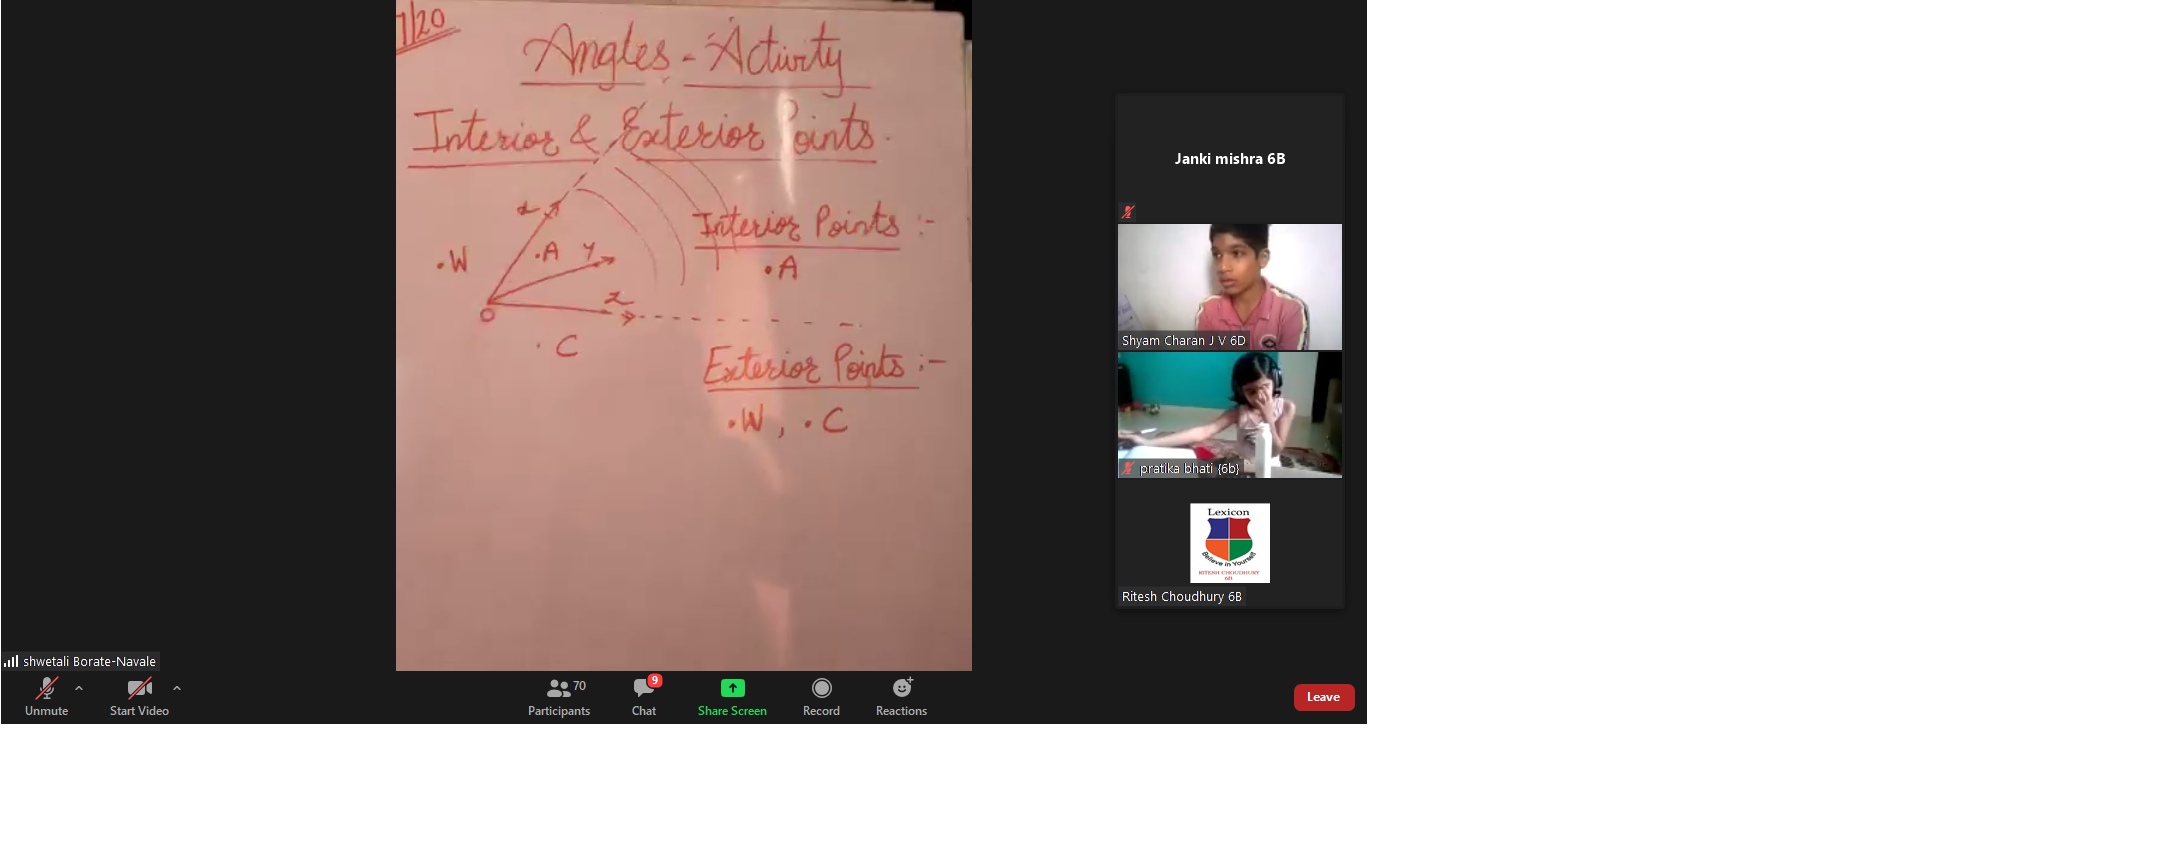 7/20
Angles - Activity
Interior & Exterior Points.
x
.W
.A
y
z
O
.C
Interior Points :-
.A
Exterior Points :-
.W, .C
Janki mishra 6B
Shyam Charan J V 6D
pratika bhati {6b}
Lexicon
Believe in Yourself
RITESH CHOUDHURY
6B
Ritesh Choudhury 6B
shwetali Borate-Navale
Unmute
Start Video
70
Participants
9
Chat
Share Screen
Record
Reactions
Leave